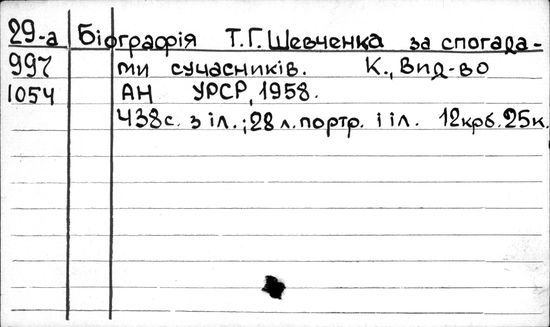 29-а Біографія Т.Г.Шевченка за спогада-
997 ми сучасників. К., Вид-во
1054 АН УРСР, 1958.
438с. з іл.; 28 л. портр. і іл. 12крб. 25к.